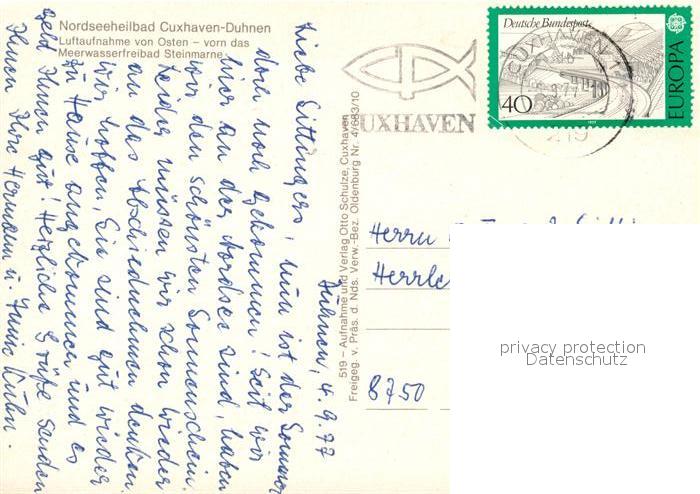 Nordseeheilbad Cuxhaven-Duhnen
Luftaufnahme von Osten – vorn das
Meerwasserfreibad Steinmarne
Deutsche Bundespost
40
EUROPA
1977
CUXHAVEN 1
219
CUXHAVEN
519 – Aufnahme und Verlag Otto Schulze, Cuxhaven
Freigeg. v. Präs. d. Nds. Verw.-Bez. Oldenburg Nr. 4/683/10
Duhnen, 4.9.77
Liebe Sittingers, nun ist der Sommer
doch noch gekommen! Seit wir
hier an der Nordsee sind, haben
wir den schönsten Sonnenschein.
Leider müssen wir schon wieder
an das Abschiednehmen denken.
Wir hoffen, Sie sind gut wieder
zu Hause angekommen und es
geht Ihnen gut! Herzliche Grüße senden
Ihnen Ihre Hermann u.
Herrn
8750
privacy protection
Datenschutz